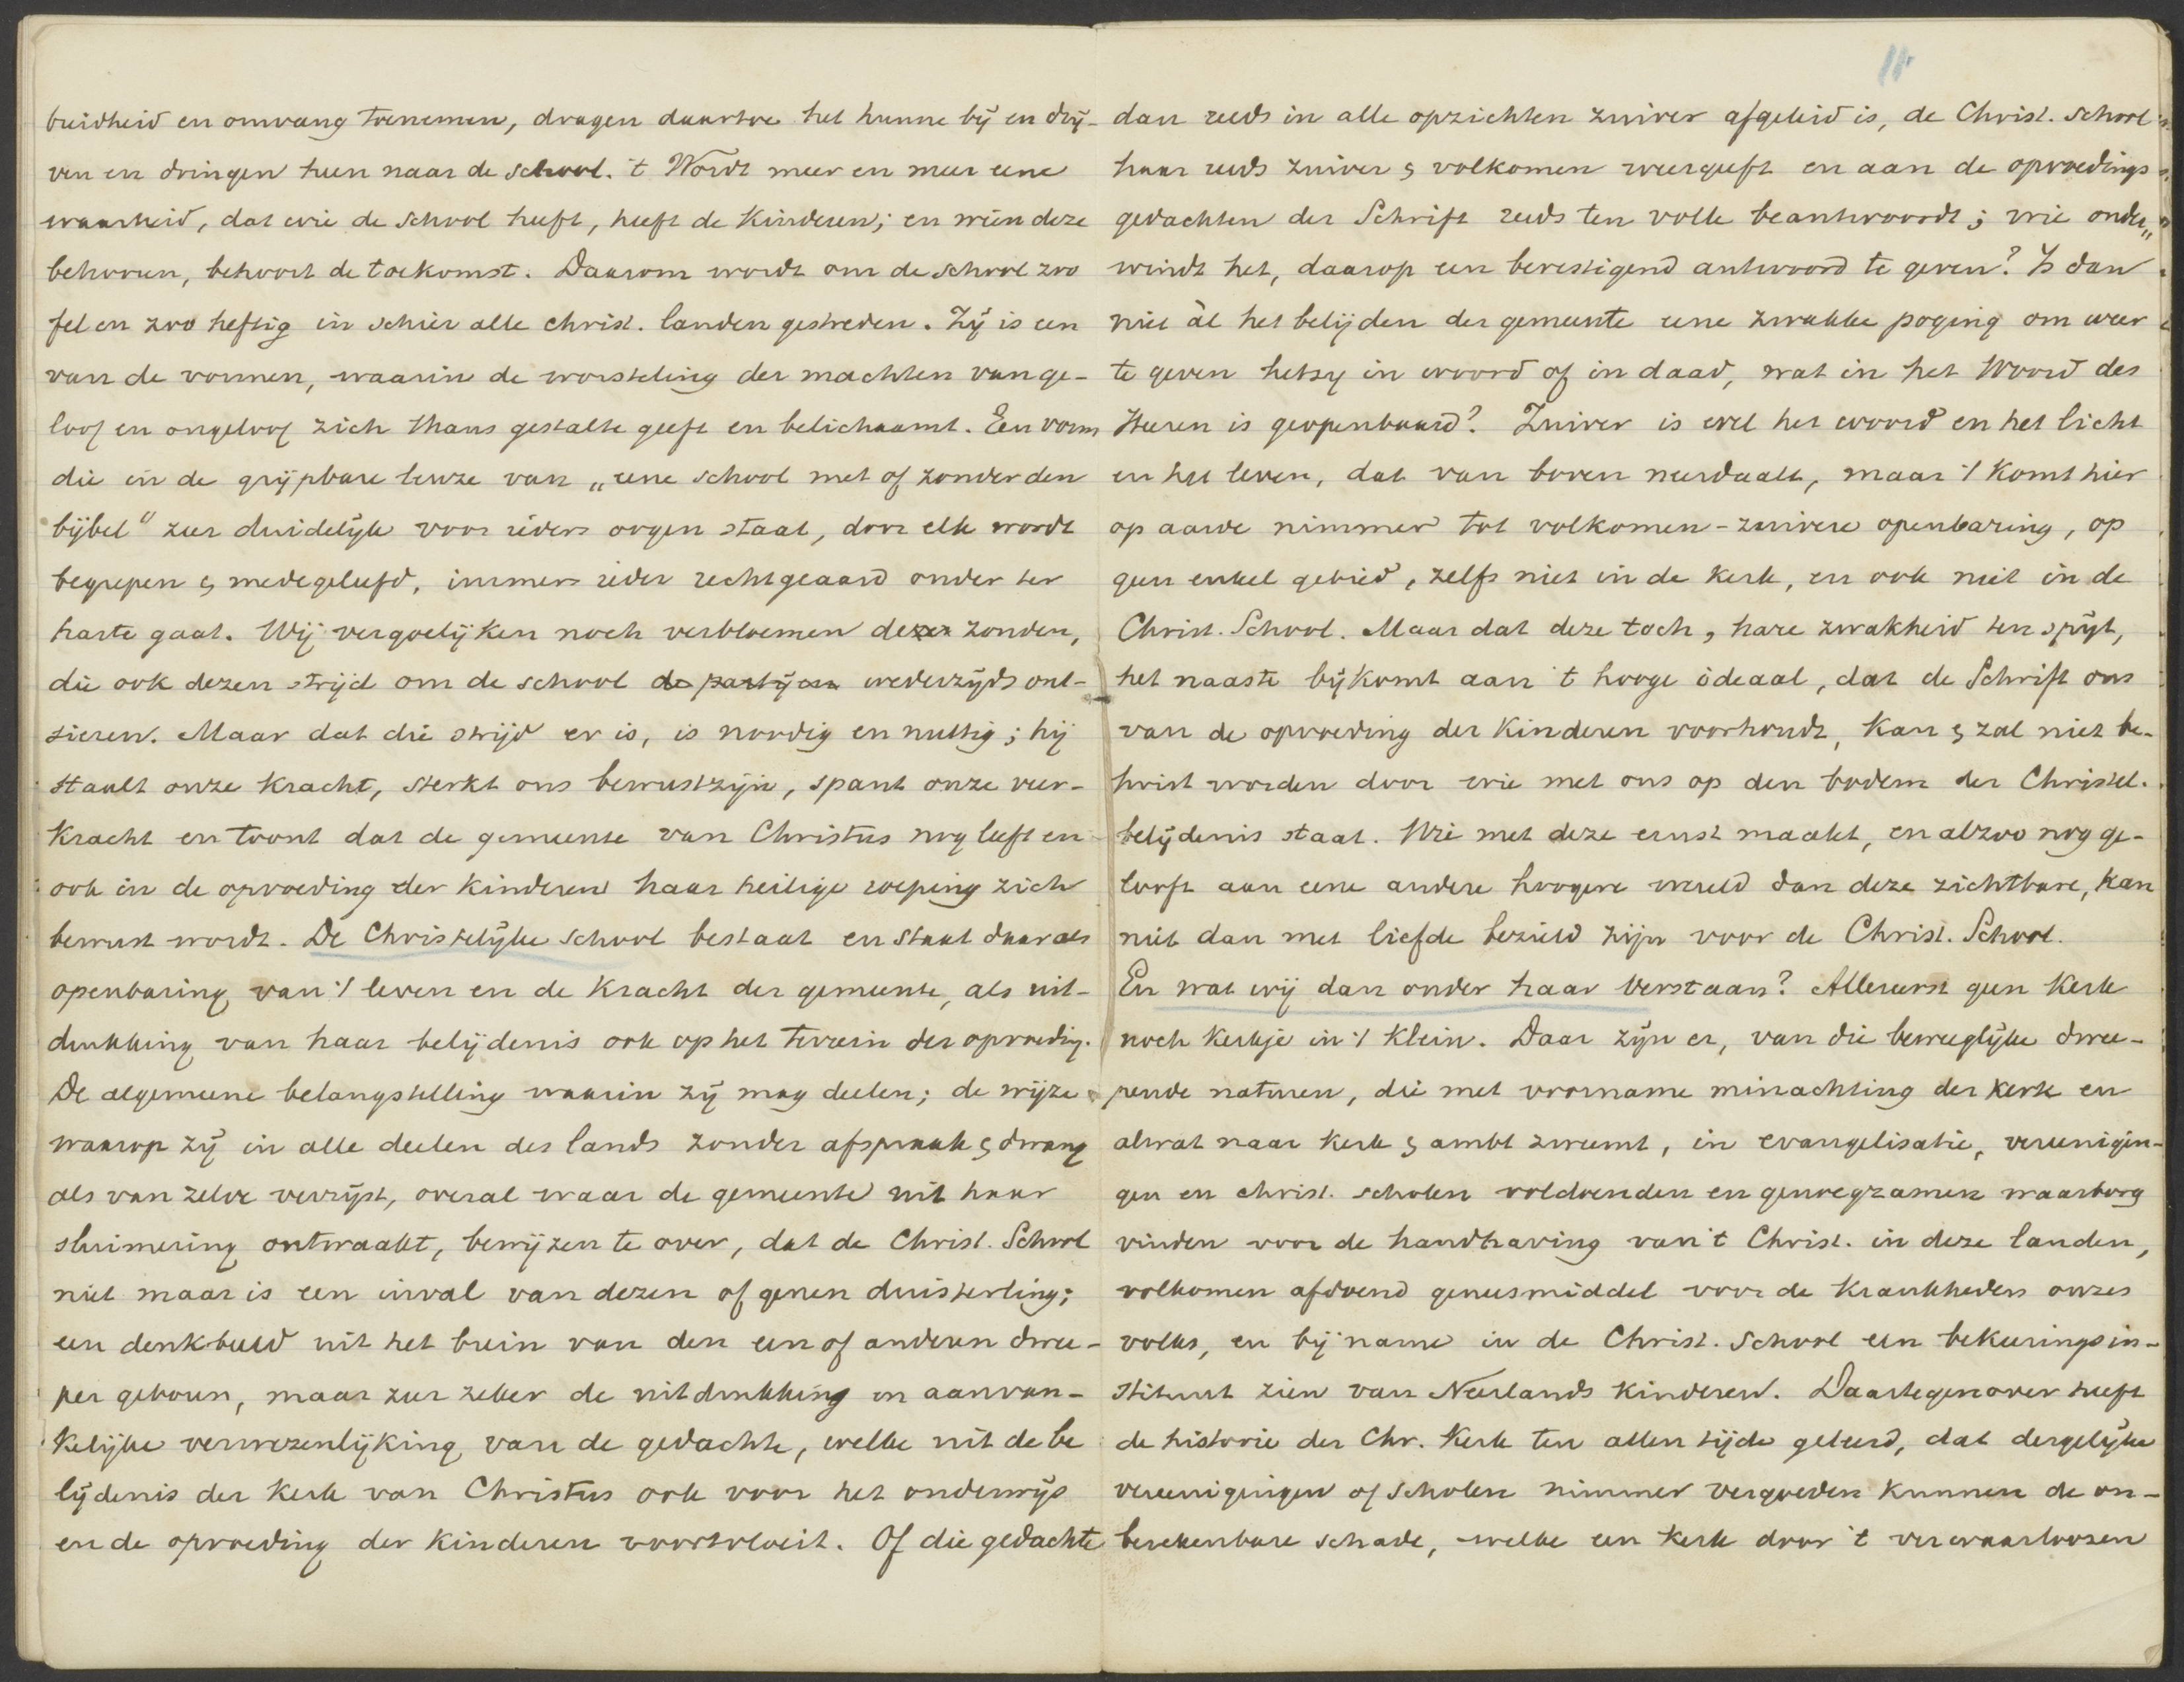 breidheid en omvang toenemen, dragen daartoe het hunne bij en drij-
ven en dringen heen naar de school. 't Wordt meer en meer eene
waarheid, dat wie de school heeft, heeft de kinderen; en wien deze
behooren, behoort de toekomst. Daarom wordt om de school zoo
fel en zoo heftig in schier alle christ. landen gestreden. Zij is een
van de vormen, waarin de worsteling der machten van ge-
loof en ongeloof zich thans gestalte geeft en belichaamt. Een vorm
die in de grijpbare leuze van „eene school met of zonder den
bijbel" zeer duidelijk voor ieders oogen staat, door elk wordt
begrepen & medegeleefd, immers ieder rechtgeaard onder ter
harte gaat. Wij vergoelijken noch verbloemen de zonden,
die ook dezen strijd om de school de partijen wederzijds ont-
sieren. Maar dat die strijd er is, is noodig en nuttig; hij
staalt onze kracht, sterkt ons bewustzijn, spant onze veer-
kracht en toont dat de gemeente van Christus nog leeft en
ook in de opvoeding der kinderen haar heilige roeping zich
bewust wordt. De Christelijke school bestaat en staat daar als
openbaring van 't leven en de kracht der gemeente, als uit-
drukking van haar belijdenis ook op het terrein der opvoeding.
De algemeene belangstelling waarin zij mag deelen; de wijze
waarop zij in alle deelen des lands zonder afspraak & dwang
als van zelve verrijst, overal waar de gemeente uit haar
sluimering ontwaakt, bewijzen te over, dat de Christ. School
niet maar is een inval van dezen of genen duisterling;
een denkbeeld uit het brein van den een of anderen dwee-
per geboren, maar zeer zeker de uitdrukking en aanvan-
kelijke verwezenlijking van de gedachte, welke uit de be
lijdenis der kerk van Christus ook voor het onderwijs
en de opvoeding der kinderen voortvloeit. Of die gedachte
11
dan reeds in alle opzichten zuiver afgeleid is, de Christ. School
haar reeds zuiver & volkomen weergeeft en aan de opvoedings
gedachten der Schrift reeds ten volle beantwoordt; wie onder„
windt het, daarop een bevestigend antwoord te geven? Is dan
niet àl het belijden der gemeente eene zwakke poging om weer
te geven hetzij in woord of in daad, wat in het Woord des
Heeren is geopenbaard? Zuiver is wel het woord en het licht
en het leven, dat van boven neerdaalt, maar 't komt hier
op aarde nimmer tot volkomen-zuivere openbaring, op
geen enkel gebied, zelfs niet in de kerk, en ook niet in de
Christ. School. Maar dat deze toch, hare zwakheid ten spijt,
het naaste bijkomt aan 't hooge ideaal, dat de Schrift ons
van de opvoeding der kinderen voorhoudt, kan & zal niet be-
twist worden door wie met ons op den bodem der Christel.
belijdenis staat. Wie met deze ernst maakt, en alzoo nog ge-
looft aan eene andere hoogere wereld dan deze zichtbare, kan
niet dan met liefde bezield zijn voor de Christ. School.
En wat wij dan onder haar verstaan? Allereerst geen kerk
noch kerkje in 't klein. Daar zijn er, van die beweeglijke dwee-
pende naturen, die met voorname minachting der kerk en
alwat naar kerk & ambt zweemt, in evangelisatie, vereenigin-
gen en christ. scholen voldoenden en genoegzamen waarborg
vinden voor de handhaving van 't Christ. in deze landen,
volkomen afdoend geneesmiddel voor de krankheden onzes
volks, en bij name in de Christ. School een bekeerings in-
stituut zien van Neerlands kinderen. Daartegenover heeft
de historie der Chr. Kerk ten allen tijde geleerd, dat dergelijke
vereenigingen of scholen nimmer vergoeden kunnen de on-
berekenbare schade, welke een kerk door 't verwaarloozen